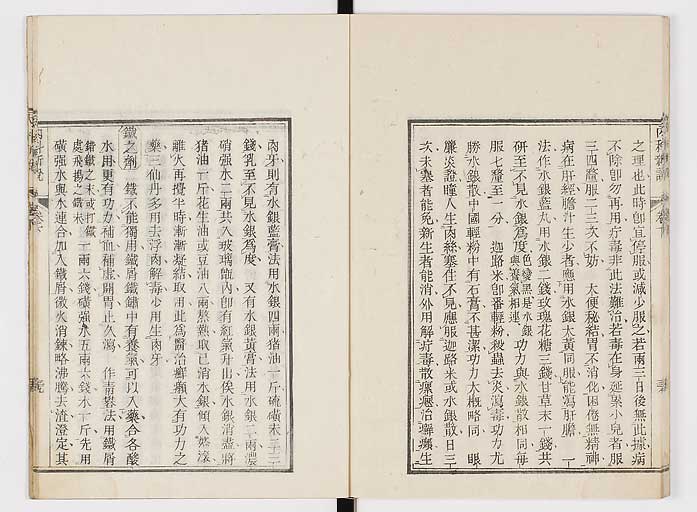 之理也此時卽宜停服或減少服之若兩三日後無此據病
不除卽勿再用疔毒非此法難治若毒在身延累小兒者服
三四釐服二三次不妨　大便秘結胃不消化困倦無精神
病在肝經膽汁生少者應用水銀大黃同服能瀉肝膽　一
法作水銀藍丸用水銀二錢玫瑰花糖三錢甘草末一錢共
研至不見水銀爲度色變黑是水銀與養氣相連功力與水銀散相同每
服七釐至一分　迦路米卽番輕粉殺蟲去炎瀉毒功力尤
勝水銀散中國輕粉中有石膏不甚潔功力大槪略同　眼
簾炎證瞳人生肉絲蔡住不見應服迦路米或水銀散日三
次未蔡者能免新生者能消外用解疔毒散瘰癧治癬癩生
肉芽則有水銀藍膏法用水銀四兩猪油一斤硫磺末三
錢乳至不見水銀爲度　又有水銀黃膏法用水銀二兩濃
硝强水二兩共入玻璃甁內卽有紅氣升出俟水銀消盡將
猪油一斤花生油或豆油八兩熬熟取已消水銀傾入攪滾
離火再攪半時漸漸凝結取用此爲醫治癬癩大有功力之
藥三仙丹多用去浮肉解毒少用生肉牙
鐵之劑　鐵不能獨用鐵屑鐵鏽中有養氣可以入藥合各酸
水用更有功力補血補虛開胃止久瀉　作靑礬法用鐵屑
銼鐵之末或打鐵處飛揚之鐵末一兩六錢磺强水五兩六錢水一斤先用
磺强水與水連合加入鐵屑微火消鍊略沸騰去渣澄定其